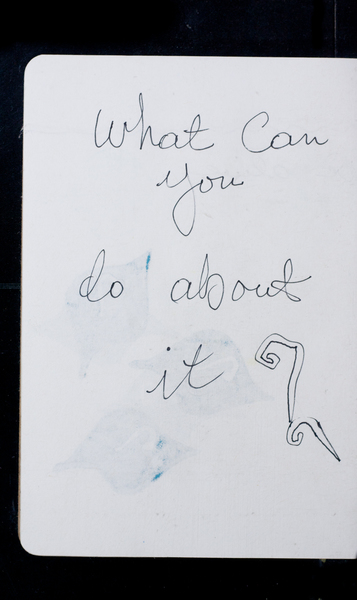 What Can
you
do about
it ?